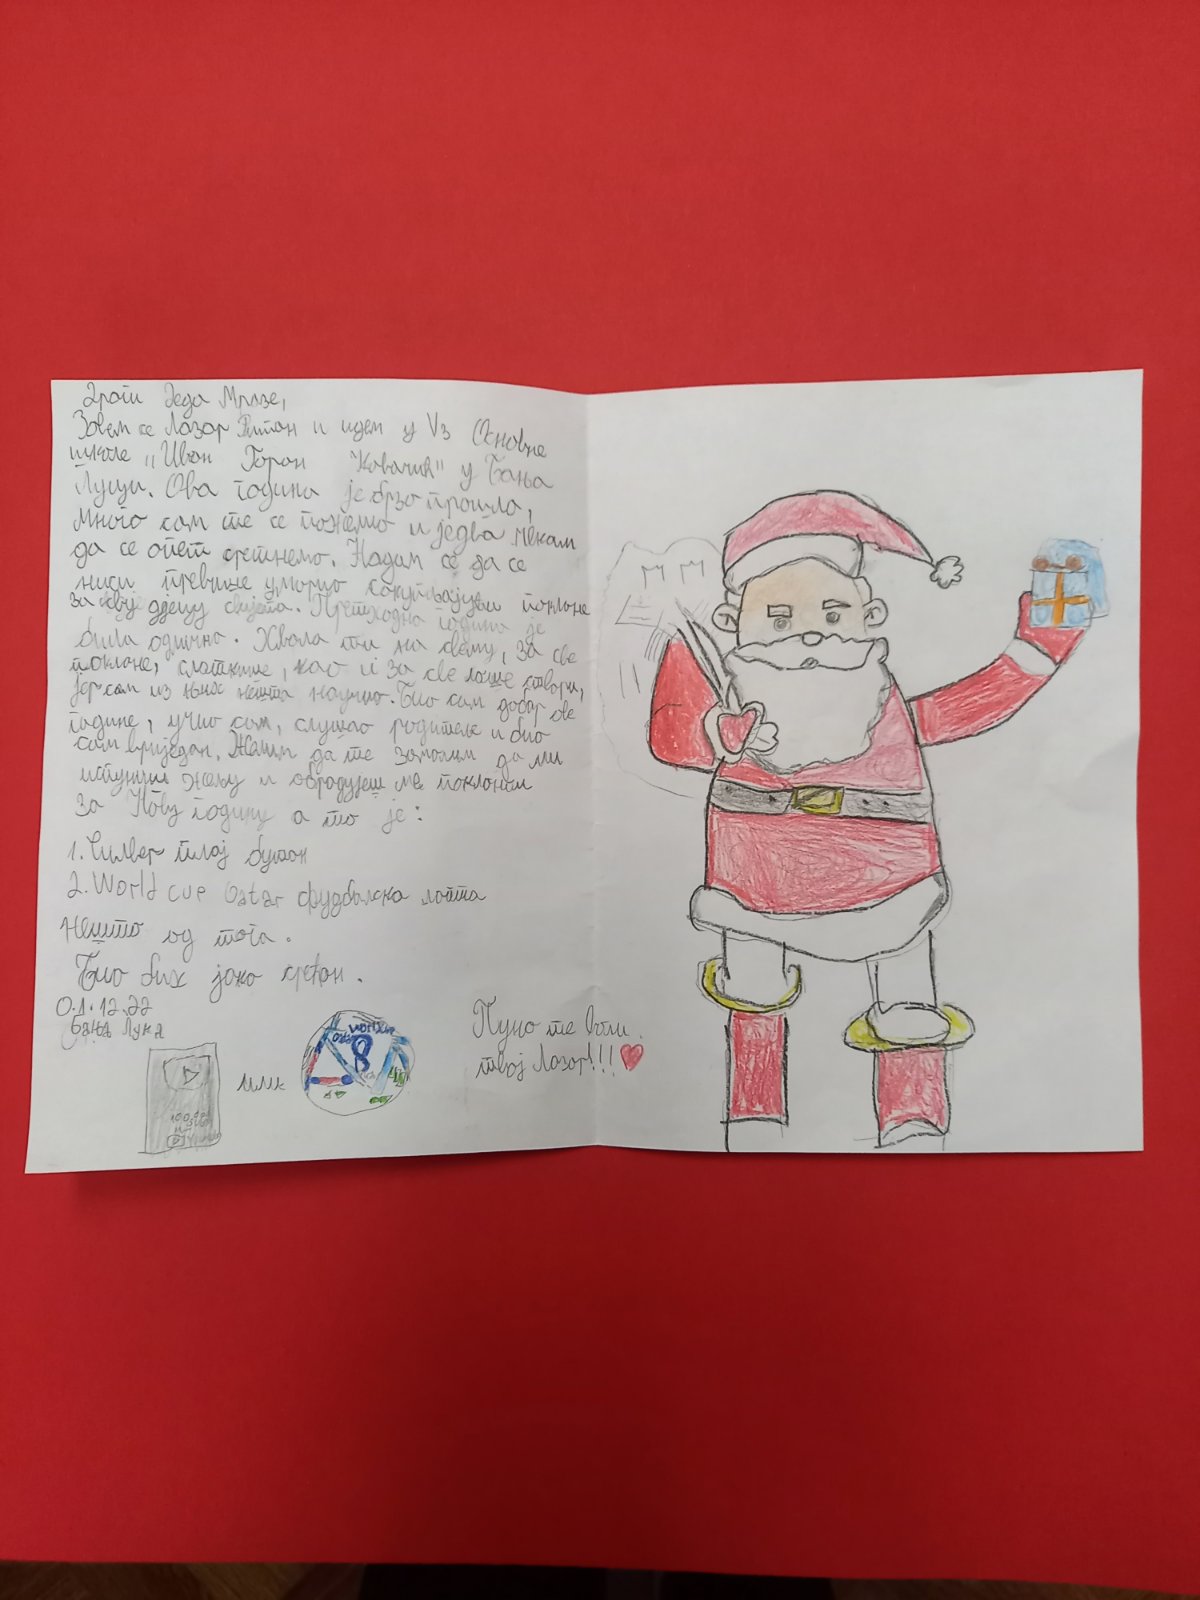 Драги Деда Мразе,
Зовем се Лазар и идем у V3 Основне
школе "Иван Горан Ковачић" у Бања
Луци. Ова година је брзо прошла,
Много сам те се пожелио и једва чекам
да се опет сретнемо. Надам се да се
ниси превише уморио сакупљајући поклоне
за дјецу свијета. Претходна година је
била одлична. Хвала ти на свему, за све
поклоне, слаткише, као и за све лоше ствари,
јер сам из њих нешта научио. Био сам добар ове
године, учио сам, слушао родитеље и био
сам вриједан. Желим да те замолим да ми
испуниш жељу и обрадујеш ме поклоном
за Нову годину а то је:
1. Силвер плај бутон
2. World cup Qatar фудбалска лопта
Нешто од тога.
Био бих јако срећан.
01.12.22
Бања Лука
или
World cup
Qatar
8
100,000
Пуно те воли
твој Лазар!!!